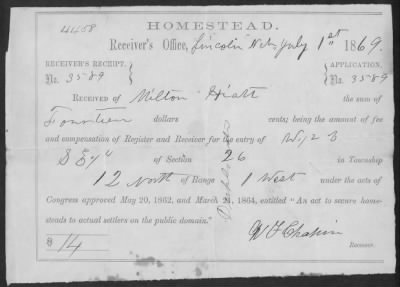 HOMESTEAD.
4458
Receiver's Office, Lincoln Neb, July 1st 1869.
RECEIVER'S RECEIPT, APPLICATION,
No. 3589 No. 3589
RECEIVED of Milton Hiatt the sum of
Fourteen dollars cents; being the amount of fee
and compensation of Register and Receiver for the entry of W 1/2 of
S E 1/4 of Section 26 in Township
12 North of Range 1 West under the acts of
Congress approved May 20, 1862, and March 21, 1864, entitled "An act to secure home-
steads to actual settlers on the public domain."
Duplicate
$ 14
Receiver.